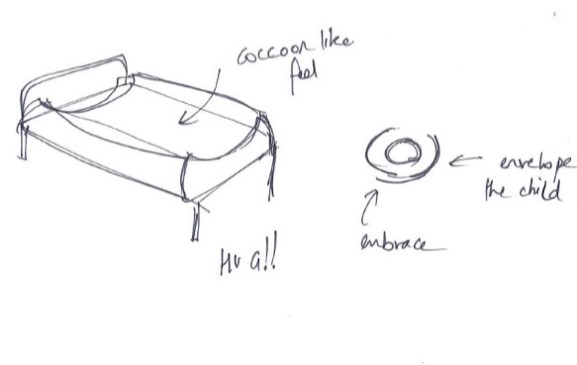 coccoon like
feel
envelope
the child
embrace
HUG!!